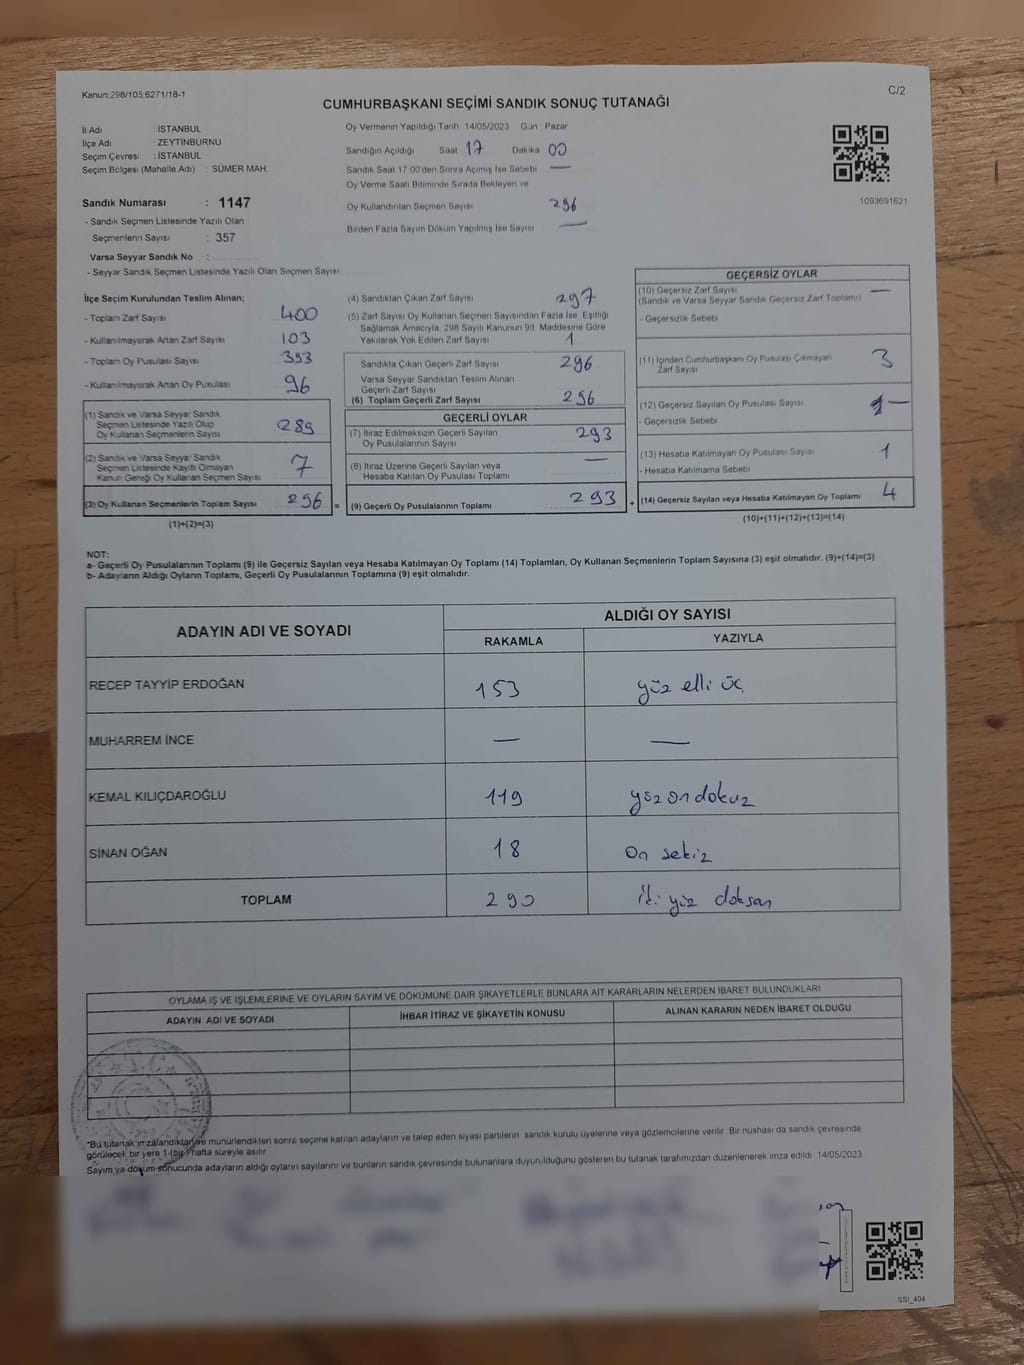 Kanun:298/105;6271/18-1
C/2
CUMHURBAŞKANI SEÇİMİ SANDIK SONUÇ TUTANAĞI
İl Adı : İSTANBUL
İlçe Adı : ZEYTİNBURNU
Seçim Çevresi : İSTANBUL
Seçim Bölgesi (Mahalle Adı) : SÜMER MAH.
Sandık Numarası : 1147
- Sandık Seçmen Listesinde Yazılı Olan
Seçmenlerin Sayısı : 357
Varsa Seyyar Sandık No :
- Seyyar Sandık Seçmen Listesinde Yazılı Olan Seçmen Sayısı
Oy Vermenin Yapıldığı Tarih : 14/05/2023 Gün : Pazar
Sandığın Açıldığı Saat 17 Dakika 00
Sandık Saat 17:00'den Sonra Açımış İse Sebebi —
Oy Verme Saati Bitiminde Sırada Bekleyen ve
Oy Kullandırılan Seçmen Sayısı 296
Birden Fazla Sayım Döküm Yapılmış İse Sayısı —
1093691621
İlçe Seçim Kurulundan Teslim Alınan;
- Toplam Zarf Sayısı 400
- Kullanılmayarak Artan Zarf Sayısı 103
- Toplam Oy Pusulası Sayısı 393
- Kullanılmayarak Artan Oy Pusulası 96
(1) Sandık ve Varsa Seyyar Sandık
Seçmen Listesinde Yazılı Olup
Oy Kullanan Seçmenlerin Sayısı 289
(2) Sandık ve Varsa Seyyar Sandık
Seçmen Listesinde Kayıtlı Olmayan
Kanun Gereği Oy Kullanan Seçmen Sayısı 7
(3) Oy Kullanan Seçmenlerin Toplam Sayısı 296 =
(1)+(2)=(3)
(4) Sandıktan Çıkan Zarf Sayısı 297
(5) Zarf Sayısı Oy Kullanan Seçmen Sayısından Fazla İse, Eşitliği
Sağlamak Amacıyla, 298 Sayılı Kanunun 98. Maddesine Göre
Yakılarak Yok Edilen Zarf Sayısı 1
Sandıkta Çıkan Geçerli Zarf Sayısı 296
Varsa Seyyar Sandıktan Teslim Alınan
Geçerli Zarf Sayısı
(6) Toplam Geçerli Zarf Sayısı 296
GEÇERLİ OYLAR
(7) İtiraz Edilmeksizin Geçerli Sayılan
Oy Pusulalarının Sayısı 293
(8) İtiraz Üzerine Geçerli Sayılan veya
Hesaba Katılan Oy Pusulası Toplamı —
(9) Geçerli Oy Pusulalarının Toplamı 293 +
GEÇERSİZ OYLAR
(10) Geçersiz Zarf Sayısı —
(Sandık ve Varsa Seyyar Sandık Geçersiz Zarf Toplamı)
- Geçersizlik Sebebi
(11) İçinden Cumhurbaşkanı Oy Pusulası Çıkmayan
Zarf Sayısı 3
(12) Geçersiz Sayılan Oy Pusulası Sayısı —
- Geçersizlik Sebebi
(13) Hesaba Katılmayan Oy Pusulası Sayısı 1
- Hesaba Katılmama Sebebi
(14) Geçersiz Sayılan veya Hesaba Katılmayan Oy Toplamı 4
(10)+(11)+(12)+(13)=(14)
NOT:
a- Geçerli Oy Pusulalarının Toplamı (9) ile Geçersiz Sayılan veya Hesaba Katılmayan Oy Toplamı (14) Toplamları, Oy Kullanan Seçmenlerin Toplam Sayısına (3) eşit olmalıdır. (9)+(14)=(3)
b- Adayların Aldığı Oyların Toplamı, Geçerli Oy Pusulalarının Toplamına (9) eşit olmalıdır.
ADAYIN ADI VE SOYADI
ALDIĞI OY SAYISI
RAKAMLA YAZIYLA
RECEP TAYYİP ERDOĞAN 153 yüz elli üç
MUHARREM İNCE — —
KEMAL KILIÇDAROĞLU 119 yüz on dokuz
SİNAN OĞAN 18 On sekiz
TOPLAM 290 iki yüz doksan
OYLAMA İŞ VE İŞLEMLERİNE VE OYLARIN SAYIM VE DÖKÜMÜNE DAİR ŞİKAYETLERLE BUNLARA AİT KARARLARIN NELERDEN İBARET BULUNDUKLARI
ADAYIN ADI VE SOYADI İHBAR İTİRAZ VE ŞİKAYETİN KONUSU ALINAN KARARIN NEDEN İBARET OLDUĞU
T.C.
*Bu tutanak imzalandıktan ve mühürlendikten sonra seçime katılan adayların ve talep eden siyasi partilerin sandık kurulu üyelerine veya gözlemcilerine verilir. Bir nüshası da sandık çevresinde
görülecek bir yere 1 (bir) hafta süreyle asılır.
Sayım ve döküm sonucunda adayların aldığı oyların sayılarını ve bunların sandık çevresinde bulunanlara duyurulduğunu gösteren bu tutanak tarafımızdan düzenlenerek imza edildi. 14/05/2023
SSI_404